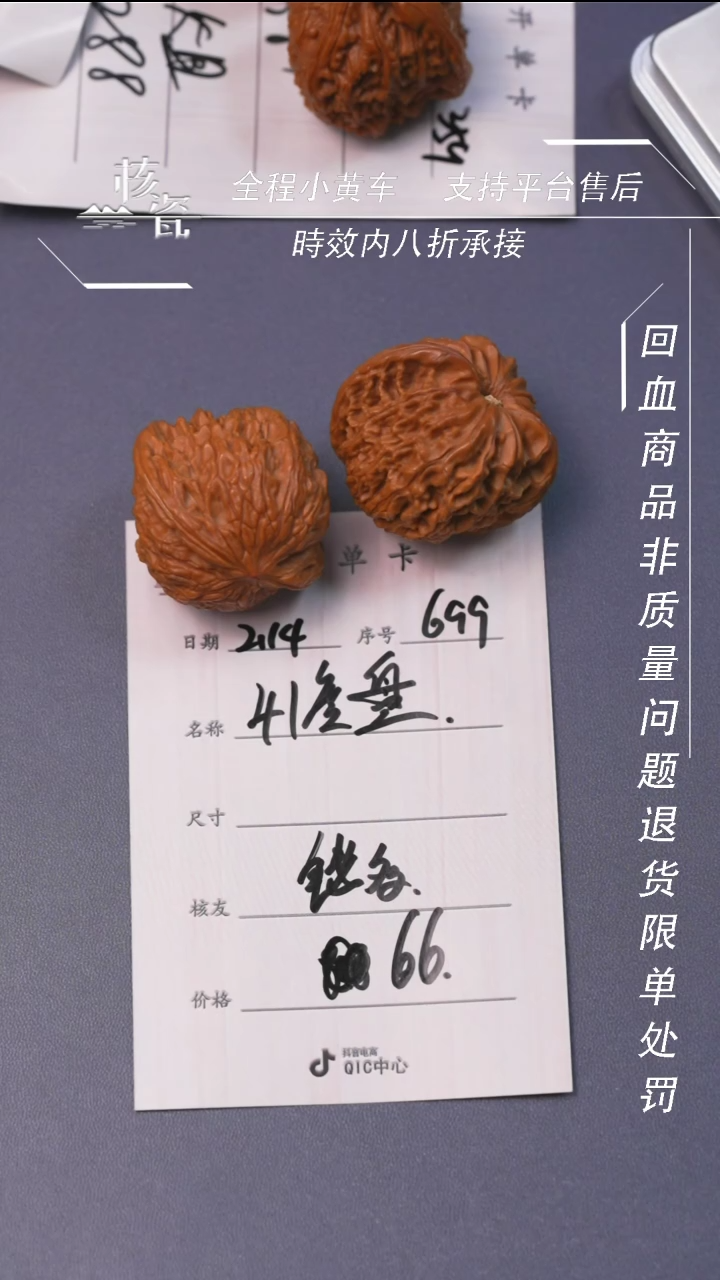 开单卡
288
359
核瓷
全程小黄车 支持平台售后
時效内八折承接
回血商品非质量问题退货限单处罚
单卡
日期 2.14 序号 699
名称 41金盘.
尺寸
核友
价格 66.
抖音电商
QIC中心